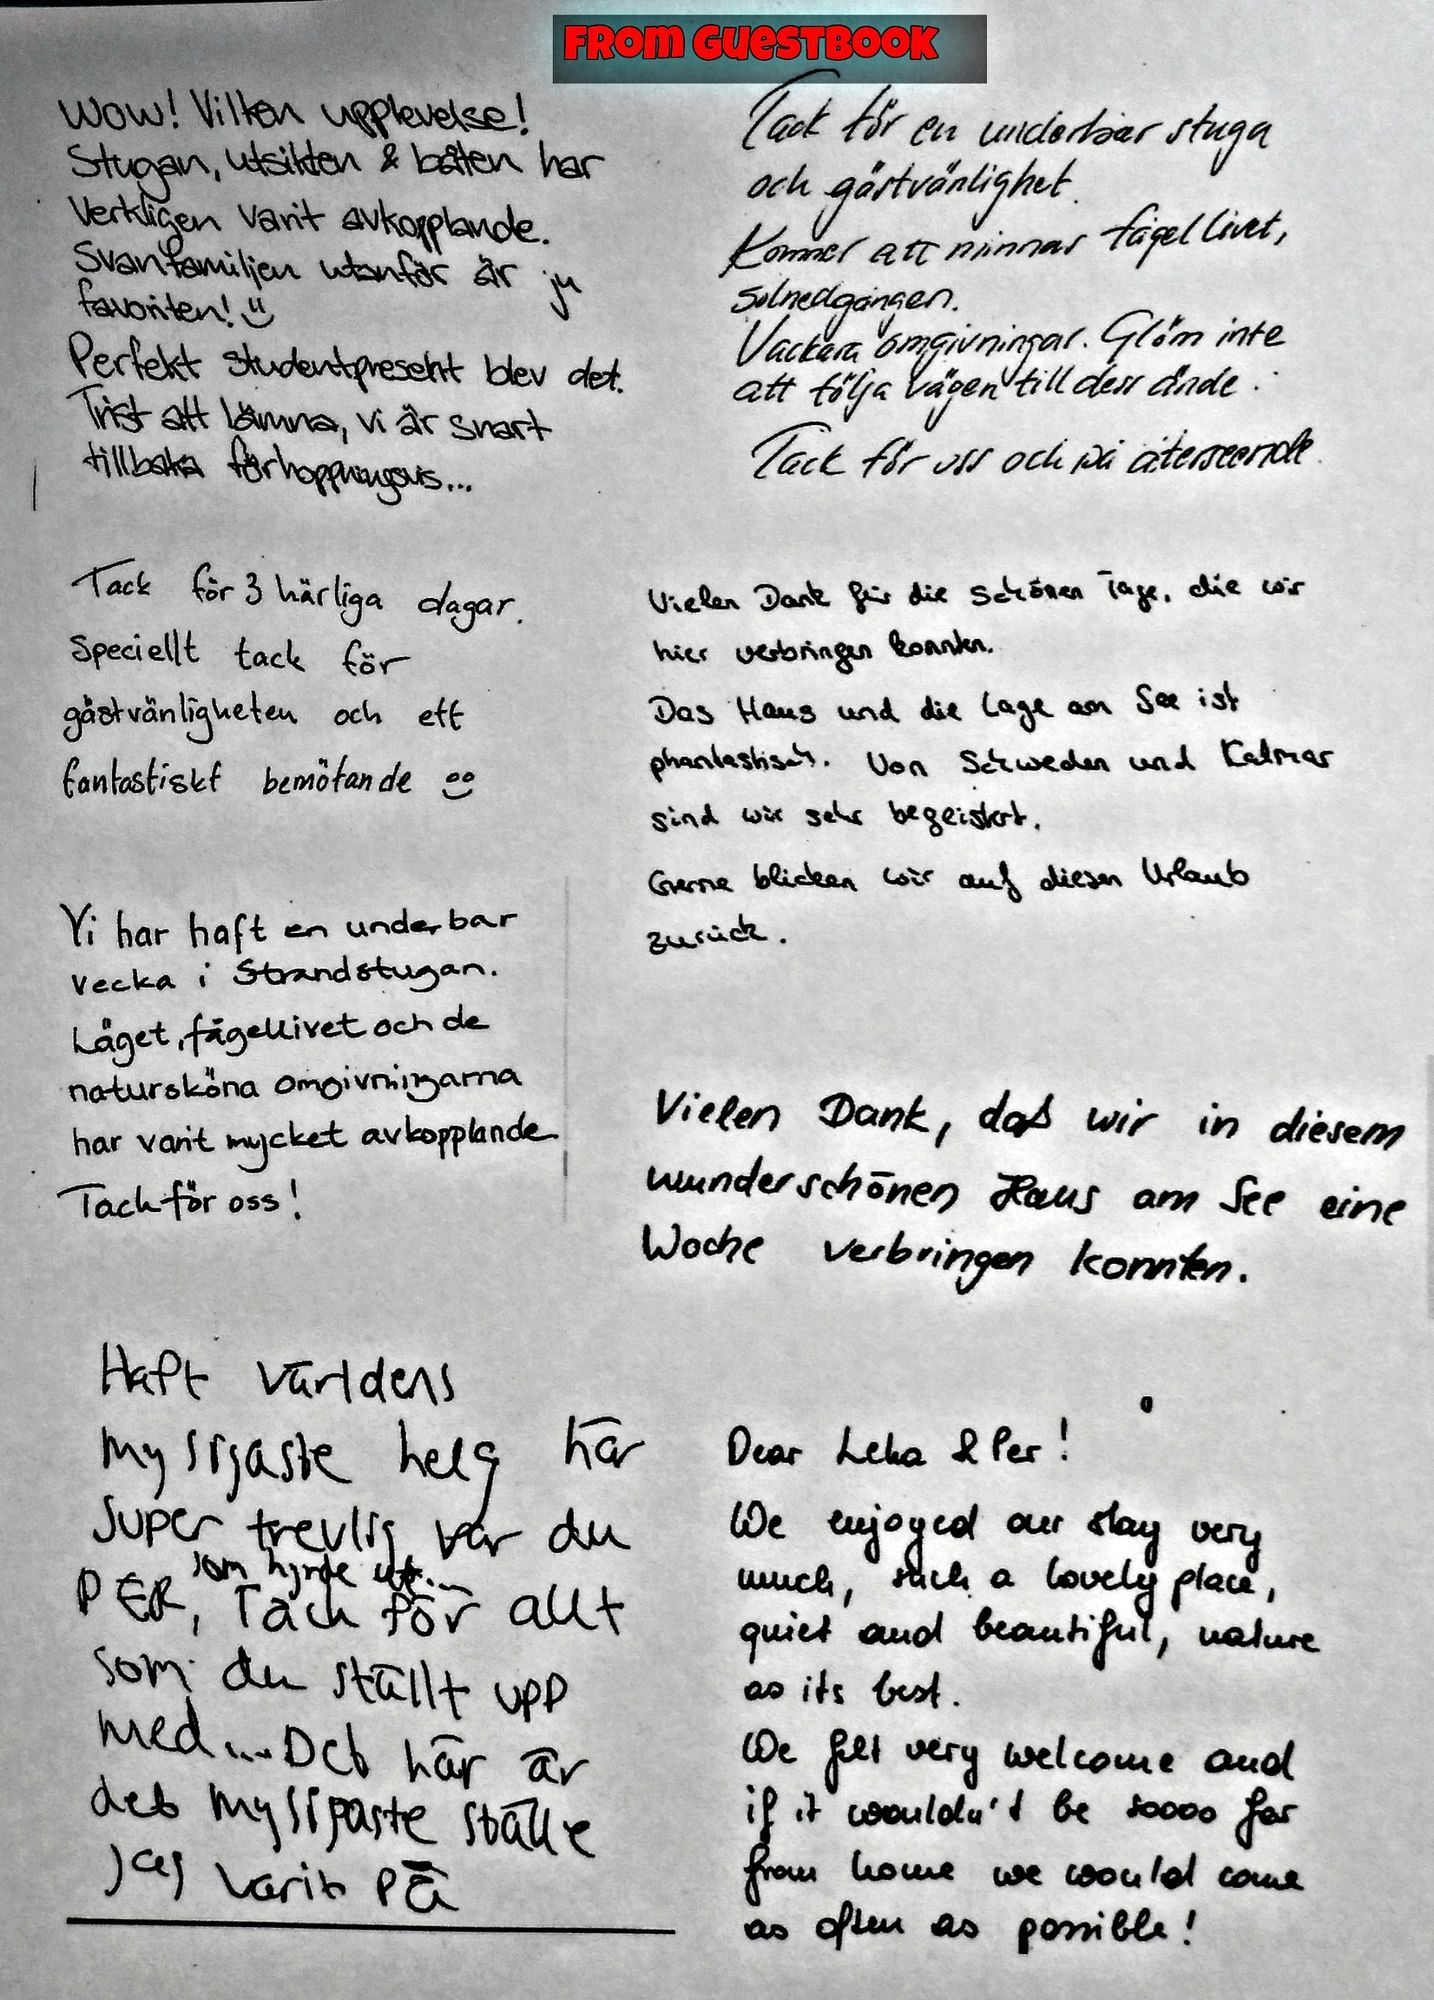 FROM GUESTBOOK
Wow! Vilken upplevelse!
Stugan, utsikten & båten har
Verkligen varit avkopplande.
Svanfamiljen utanför är ju
favoriten!
Perfekt studentpresent blev det.
Trist att lämna, vi är snart
tillbaka förhoppningsvis...
Tack för en underbar stuga
och gästvänlighet.
Kommer att minnas fågellivet,
solnedgången.
Vackara omgivningar. Glöm inte
att följa vägen till dess ände.
Tack för oss och på återseende
Tack för 3 härliga dagar.
Speciellt tack för
gästvänligheten och ett
fantastiskt bemötande
Vielen Dank für die schönen Tage, die wir
hier verbringen konnten.
Das Haus und die Lage am See ist
phantastisch. Von Schweden und Kalmar
sind wir sehr begeistert.
Gerne blicken wir auf diesen Urlaub
zurück.
Vi har haft en underbar
vecka i Strandstugan.
Läget, fågellivet och de
natursköna omgivningarna
har varit mycket avkopplande
Tack för oss!
Vielen Dank, daß wir in diesem
wunderschönen Haus am See eine
Woche verbringen konnten.
Haft världens
mysigaste helg här
super trevlig var du
som hyrde ut...
PER, Tack för allt
som du ställt upp
med... Det här är
det mysigaste ställe
jag varit på
Dear Lena & Per!
We enjoyed our stay very
much, such a lovely place,
quiet and beautiful, nature
as its best.
We felt very welcome and
if it wouldn't be soooo far
from home we would come
as often as possible!